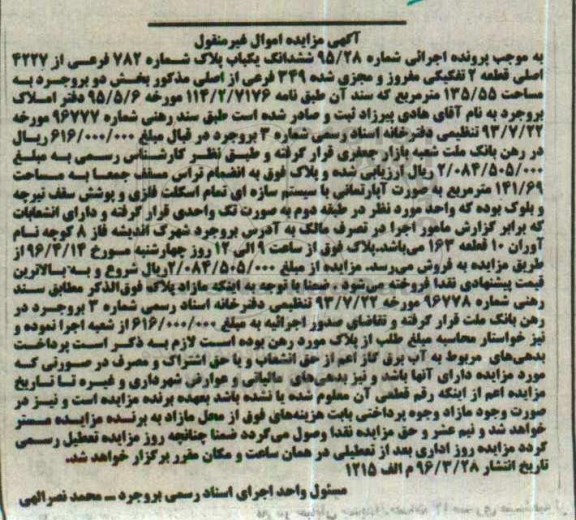 آگهی مزایده اموال غیرمنقول
به موجب پرونده اجرائی شماره ۹۵/۲۸ ششدانگ یکباب پلاک شماره ۷۸۲ فرعی از ۴۲۲۷
اصلی قطعه ۲ تفکیکی مفروز و مجزی شده ۳۴۹ فرعی از اصلی مذکور بخش دو بروجرد به
مساحت ۱۳۵/۵۵ مترمربع که سند آن طبق نامه ۱۱۴/۲/۷۱۷۶ مورخه ۹۵/۵/۶ دفتر املاک
بروجرد به نام آقای هادی پیرزاد ثبت و صادر شده است طبق سند رهنی شماره ۹۶۷۷۷ مورخه
۹۳/۷/۲۲ تنظیمی دفترخانه اسناد رسمی شماره ۳ بروجرد در قبال مبلغ ۶۱۶/۰۰۰/۰۰۰ ریال
در رهن بانک ملت شعبه بازار جعفری قرار گرفته و طبق نظر کارشناس رسمی به مبلغ
۲/۰۸۴/۵۰۵/۰۰۰ ریال ارزیابی شده و پلاک فوق به انضمام تراس مسقف جمعا به مساحت
۱۴۱/۶۹ مترمربع به صورت آپارتمانی با سیستم سازه ای تمام اسکلت فلزی و پوشش سقف تیرچه
و بلوک بوده که واحد مورد نظر در طبقه دوم به صورت تک واحدی قرار گرفته و دارای انشعابات
که برابر گزارش مامور اجرا در تصرف مالک به آدرس بروجرد شهرک اندیشه فاز ۸ کوچه نام
آوران ۱۰ قطعه ۱۶۳ می‌باشد.پلاک فوق از ساعت ۹ الی ۱۲ روز چهارشنبه مورخ ۹۶/۴/۱۴ از
طریق مزایده به فروش می‌رسد. مزایده از مبلغ ۲/۰۸۴/۵۰۵/۰۰۰ریال شروع و به بالاترین
قیمت پیشنهادی نقدا فروخته می‌شود . ضمنا با توجه به اینکه مازاد پلاک فوق‌الذکر مطابق سند
رهنی شماره ۹۶۷۷۸ مورخه ۹۳/۷/۲۲ تنظیمی دفترخانه اسناد رسمی شماره ۳ بروجرد در
رهن بانک ملت قرار گرفته و تقاضای صدور اجرائیه به مبلغ ۶۱۶/۰۰۰/۰۰۰ از شعبه اجرا نموده و
نیز خواستار محاسبه مبلغ طلب از پلاک مورد رهن بوده است لازم به ذکر است پرداخت
بدهی‌های مربوط به آب برق گاز اعم از حق انشعاب و یا حق اشتراک و مصرف در صورتی که
مورد مزایده دارای آنها باشد و نیز بدهی‌های مالیاتی و عوارض شهرداری و غیره تا تاریخ
مزایده اعم از اینکه رقم قطعی آن معلوم شده یا نشده باشد بعهده برنده مزایده است و نیز در
صورت وجود مازاد وجوه پرداختی بابت هزینه‌های فوق از محل مازاد به برنده مزایده مستر
خواهد شد و نیم عشر و حق مزایده نقدا وصول می‌گردد ضمنا چنانچه روز مزایده تعطیل رسمی
گردد مزایده روز اداری بعد از تعطیلی در همان ساعت و مکان مقرر برگزار خواهد شد.
تاریخ انتشار ۹۶/۳/۲۸ م الف ۱۲۱۵
مسئول واحد اجرای اسناد رسمی بروجرد ــ محمد نصرالهی